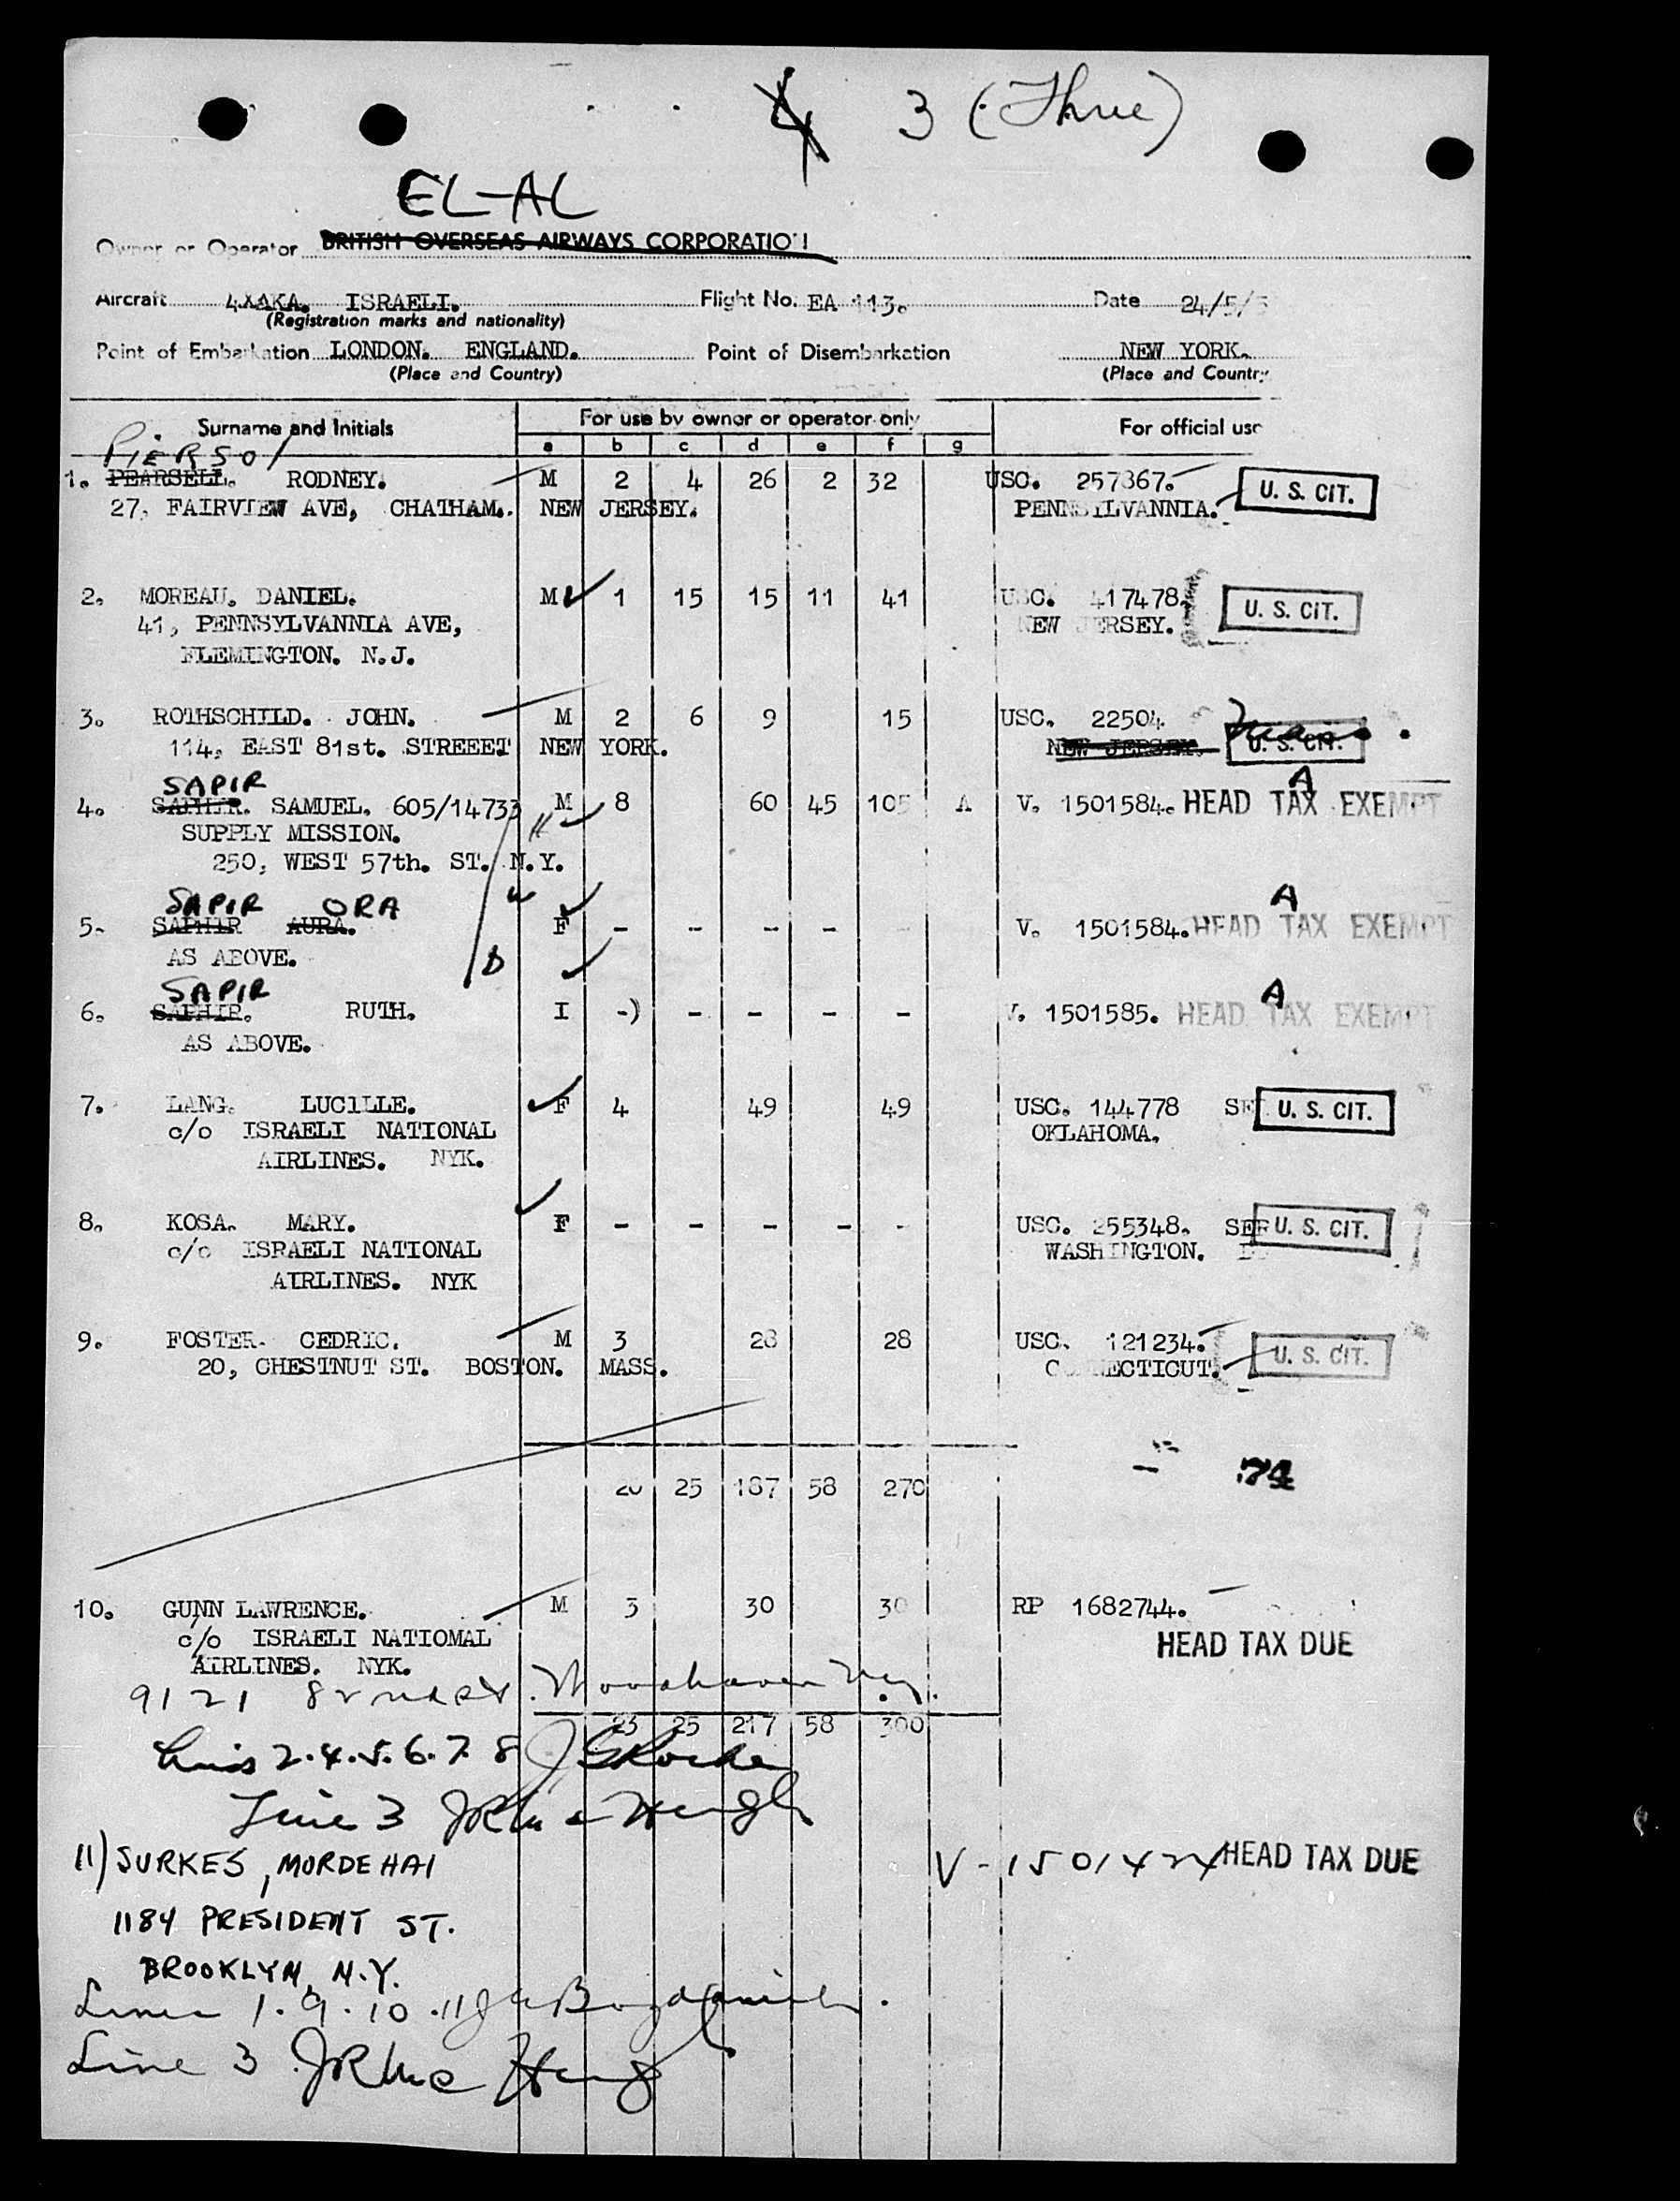 4 3 (Three)
EL-AL
Owner or Operator BRITISH OVERSEAS AIRWAYS CORPORATION
Aircraft 4XAKA. ISRAELI. Flight No. EA 113. Date 24/5/5
(Registration marks and nationality)
Point of Embarkation LONDON. ENGLAND. Point of Disembarkation NEW YORK.
(Place and Country) (Place and Country
Surname and Initials For use by owner or operator only For official use
a b c d e f g
PIERSOL
1. PEARSELL. RODNEY. M 2 4 26 2 32 USC. 257867. U. S. CIT.
27, FAIRVIEW AVE, CHATHAM. NEW JERSEY. PENNSYLVANNIA.
2. MOREAU. DANIEL. M 1 15 15 11 41 USC. 417478. U. S. CIT.
41, PENNSYLVANNIA AVE, NEW JERSEY.
FLEMINGTON. N.J.
3. ROTHSCHILD. JOHN. M 2 6 9 15 USC. 22504
114, EAST 81st. STREEET NEW YORK. NEW JERSEY. U. S. CIT.
SAPIR A
4. SAPHIR. SAMUEL. 605/14733 M 8 60 45 105 A V. 1501584. HEAD TAX EXEMPT
SUPPLY MISSION.
250, WEST 57th. ST. N.Y.
SAPIR ORA A
5. SAPHIR AURA. F - - - - - V. 1501584. HEAD TAX EXEMPT
AS ABOVE.
SAPIR A
6. SAPHIR. RUTH. I -) - - - - V. 1501585. HEAD TAX EXEMPT
AS ABOVE.
7. LANG. LUCILLE. F 4 49 49 USC. 144778 SE U. S. CIT.
c/o ISRAELI NATIONAL OKLAHOMA.
AIRLINES. NYK.
8. KOSA. MARY. F - - - - - USC. 255348. SEF U. S. CIT.
c/o ISRAELI NATIONAL WASHINGTON.
AIRLINES. NYK
9. FOSTER. CEDRIC. M 3 28 28 USC. 121234.
20, CHESTNUT ST. BOSTON. MASS. CONNECTICUT. U. S. CIT.
20 25 187 58 270
10. GUNN LAWRENCE. M 3 30 30 RP 1682744.
c/o ISRAELI NATIOMAL HEAD TAX DUE
AIRLINES. NYK.
9121 Woodhaven
23 25 217 58 300
2.4.5.6.7.8
Line 3
11) SURKES, MORDEHAI V-1501424 HEAD TAX DUE
1184 PRESIDENT ST.
BROOKLYN, N.Y.
Lines 1.9.10.11
Line 3